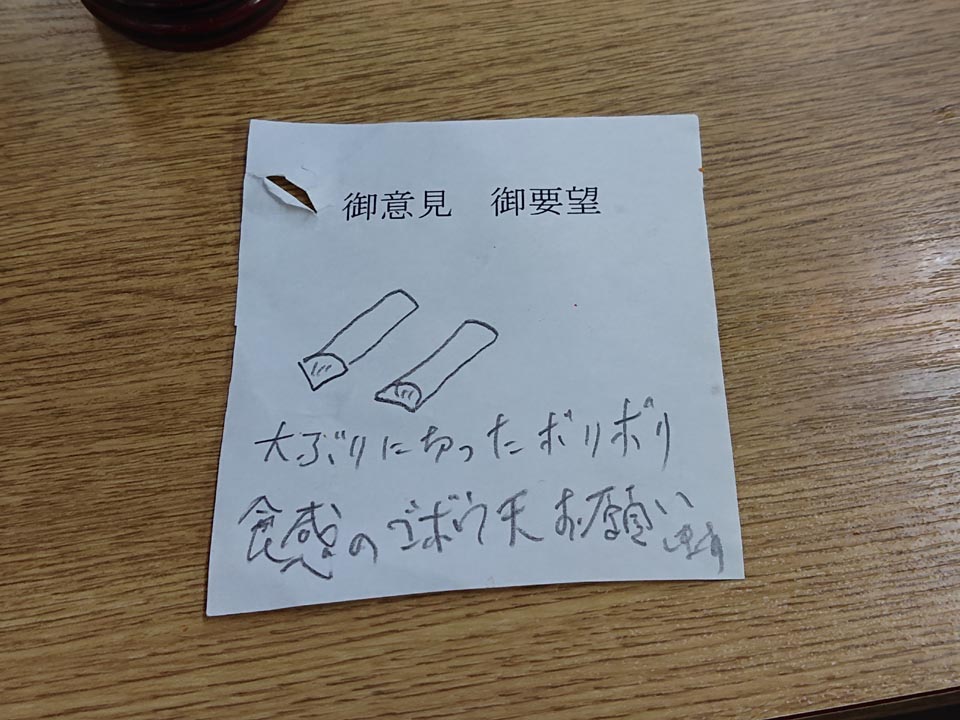 御意見 御要望
大ぶりに切ったボリボリ
食感のゴボウ天お願いします